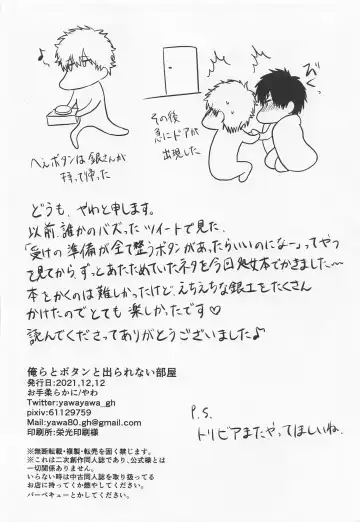 へぇボタンは銀さんが
持って帰った
その後
急にドアが
出現した
びくっ
どうも、やわと申します。
以前、誰かのバズったツイートで見た、
「受けの準備が全て整うボタンがあったらいいのになー」ってやつ
を見てから、ずっとあたためていたネタを今回処女本でかきました〜
本をかくのは難しかったけど、えちえちな銀土をたくさん
かけたのでとても楽しかったです♡
読んでくださってありがとうございました♪
俺らとボタンと出られない部屋
発行日:2021,12,12
お手柔らかに/やわ
Twitter:yawayawa_gh
pixiv:61129759
Mail:yawa80.gh@gmail.com
印刷所:栄光印刷様
P.S.
トリビアまたやってほしいね。
※無断転載・複製・転売を固く禁じます。
※これは二次創作同人誌であり、公式様とは
一切関係ありません。
いらない時は中古同人誌を取り扱ってる
お店に持ってくか燃やしてください。
バーベキューとかしてください。